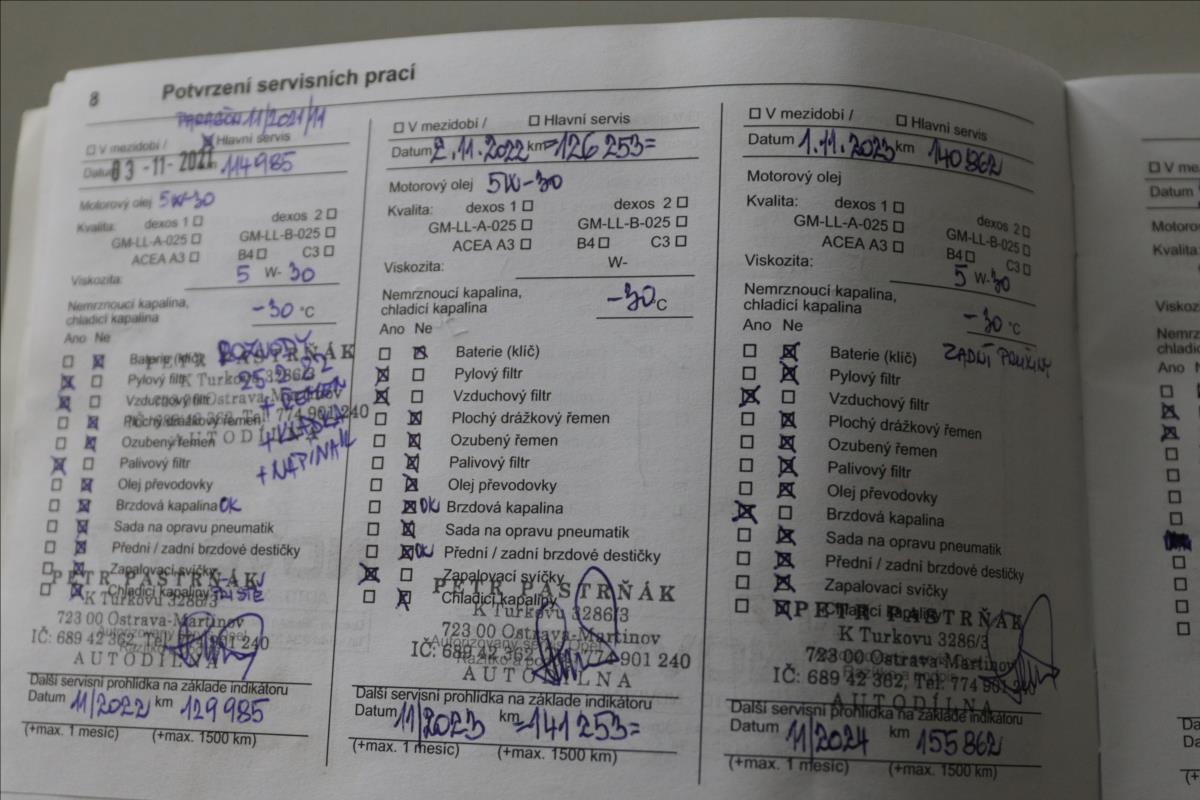 8 Potvrzení servisních prací
11/2021/11
V mezidobí / Hlavní servis
Datum 03-11-2021 114985
Motorový olej 5W-30
Kvalita: dexos 1 dexos 2
GM-LL-A-025 GM-LL-B-025
ACEA A3 B4 C3
Viskozita: 5 W- 30
Nemrznoucí kapalina,
chladicí kapalina -30 °C
Ano Ne
Baterie (klíč)
Pylový filtr
Vzduchový filtr
Plochý drážkový řemen
Ozubený řemen
Palivový filtr
Olej převodovky
Brzdová kapalina OK
Sada na opravu pneumatik
Přední / zadní brzdové destičky
Zapalovací svíčky
Chladicí kapaliny
ROZVODY
25.2.22
+ ŘEMEN
+ KLADKA
+ NAPINAK
PETR PASTRŇÁK
K Turkovu 3286/3
Ostrava-Martinov
IČ: 689 42 362, Tel: 774 901 240
AUTODÍLNA
PETR PASTRŇÁK
K Turkovu 3286/3
723 00 Ostrava-Martinov
IČ: 689 42 362, Tel: 774 901 240
AUTODÍLNA
Další servisní prohlídka na základě indikátoru
Datum 11/2022 km 129985
(+max. 1 měsíc) (+max. 1500 km)
V mezidobí / Hlavní servis
Datum 2.11.2022 km =126 253=
Motorový olej 5W-30
Kvalita: dexos 1 dexos 2
GM-LL-A-025 GM-LL-B-025
ACEA A3 B4 C3
Viskozita: W-
Nemrznoucí kapalina,
chladicí kapalina -30 °C
Ano Ne
Baterie (klíč)
Pylový filtr
Vzduchový filtr
Plochý drážkový řemen
Ozubený řemen
Palivový filtr
Olej převodovky
OK Brzdová kapalina
Sada na opravu pneumatik
OK Přední / zadní brzdové destičky
Zapalovací svíčky
Chladicí kapaliny
PETR PASTRŇÁK
K Turkovu 3286/3
723 00 Ostrava-Martinov
IČ: 689 42 362, Tel: 774 901 240
AUTODÍLNA
Další servisní prohlídka na základě indikátoru
Datum 11/2023 km =141 253=
(+max. 1 měsíc) (+max. 1500 km)
V mezidobí / Hlavní servis
Datum 1.11.2023 km 140862
Motorový olej
Kvalita: dexos 1 dexos 2
GM-LL-A-025 GM-LL-B-025
ACEA A3 B4 C3
Viskozita: 5 W- 30
Nemrznoucí kapalina,
chladicí kapalina -30 °C
Ano Ne
ZADNÍ PRUŽINY
Baterie (klíč)
Pylový filtr
Vzduchový filtr
Plochý drážkový řemen
Ozubený řemen
Palivový filtr
Olej převodovky
Brzdová kapalina
Sada na opravu pneumatik
Přední / zadní brzdové destičky
Zapalovací svíčky
Chladicí kapaliny
PETR PASTRŇÁK
K Turkovu 3286/3
723 00 Ostrava-Martinov
IČ: 689 42 362, Tel: 774 901 240
AUTODÍLNA
Další servisní prohlídka na základě indikátoru
Datum 11/2024 km 155862
(+max. 1 měsíc) (+max. 1500 km)
V me
Datum
Motoro
Kvalita
Viskozi
Nemrz
chladic
Ano
Da
Da
(+